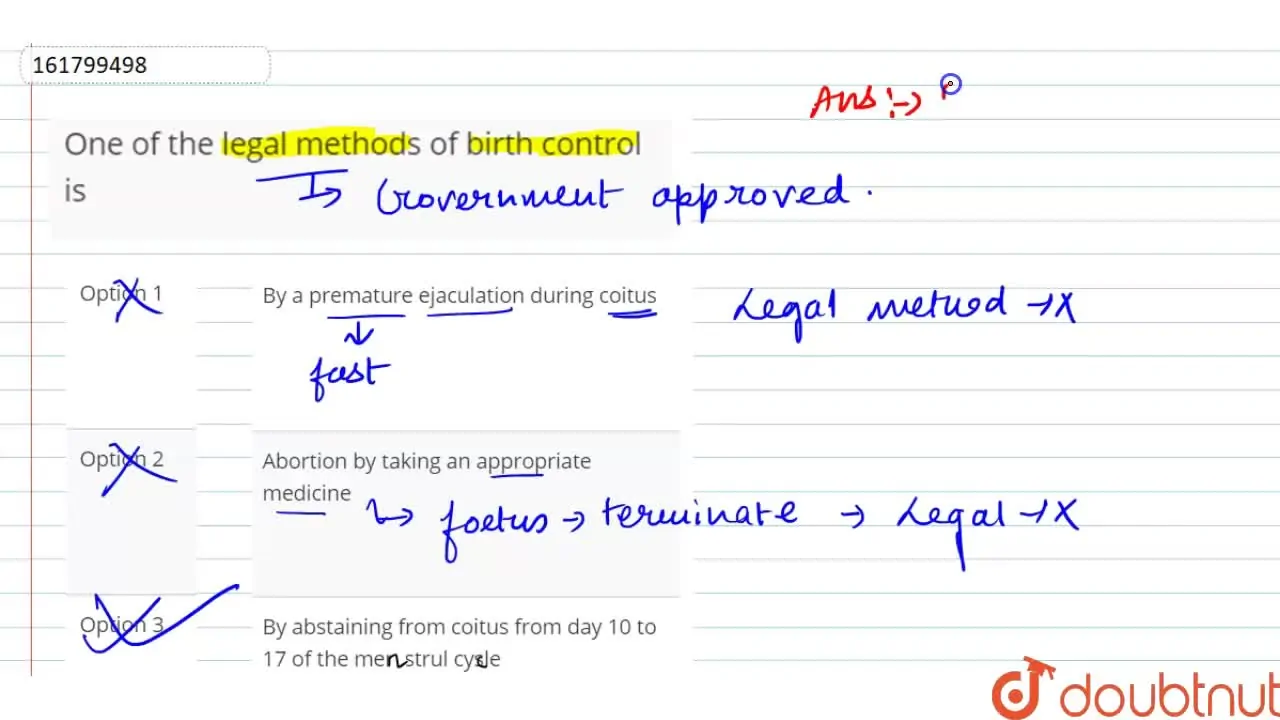 161799498
Ans :→
One of the legal methods of birth control
is
→ Government approved.
Option 1
By a premature ejaculation during coitus
Legal method → X
fast
Option 2
Abortion by taking an appropriate
medicine
↳ foetus → terminate → Legal → X
Option 3
By abstaining from coitus from day 10 to
17 of the menstrul cycle
doubtnut